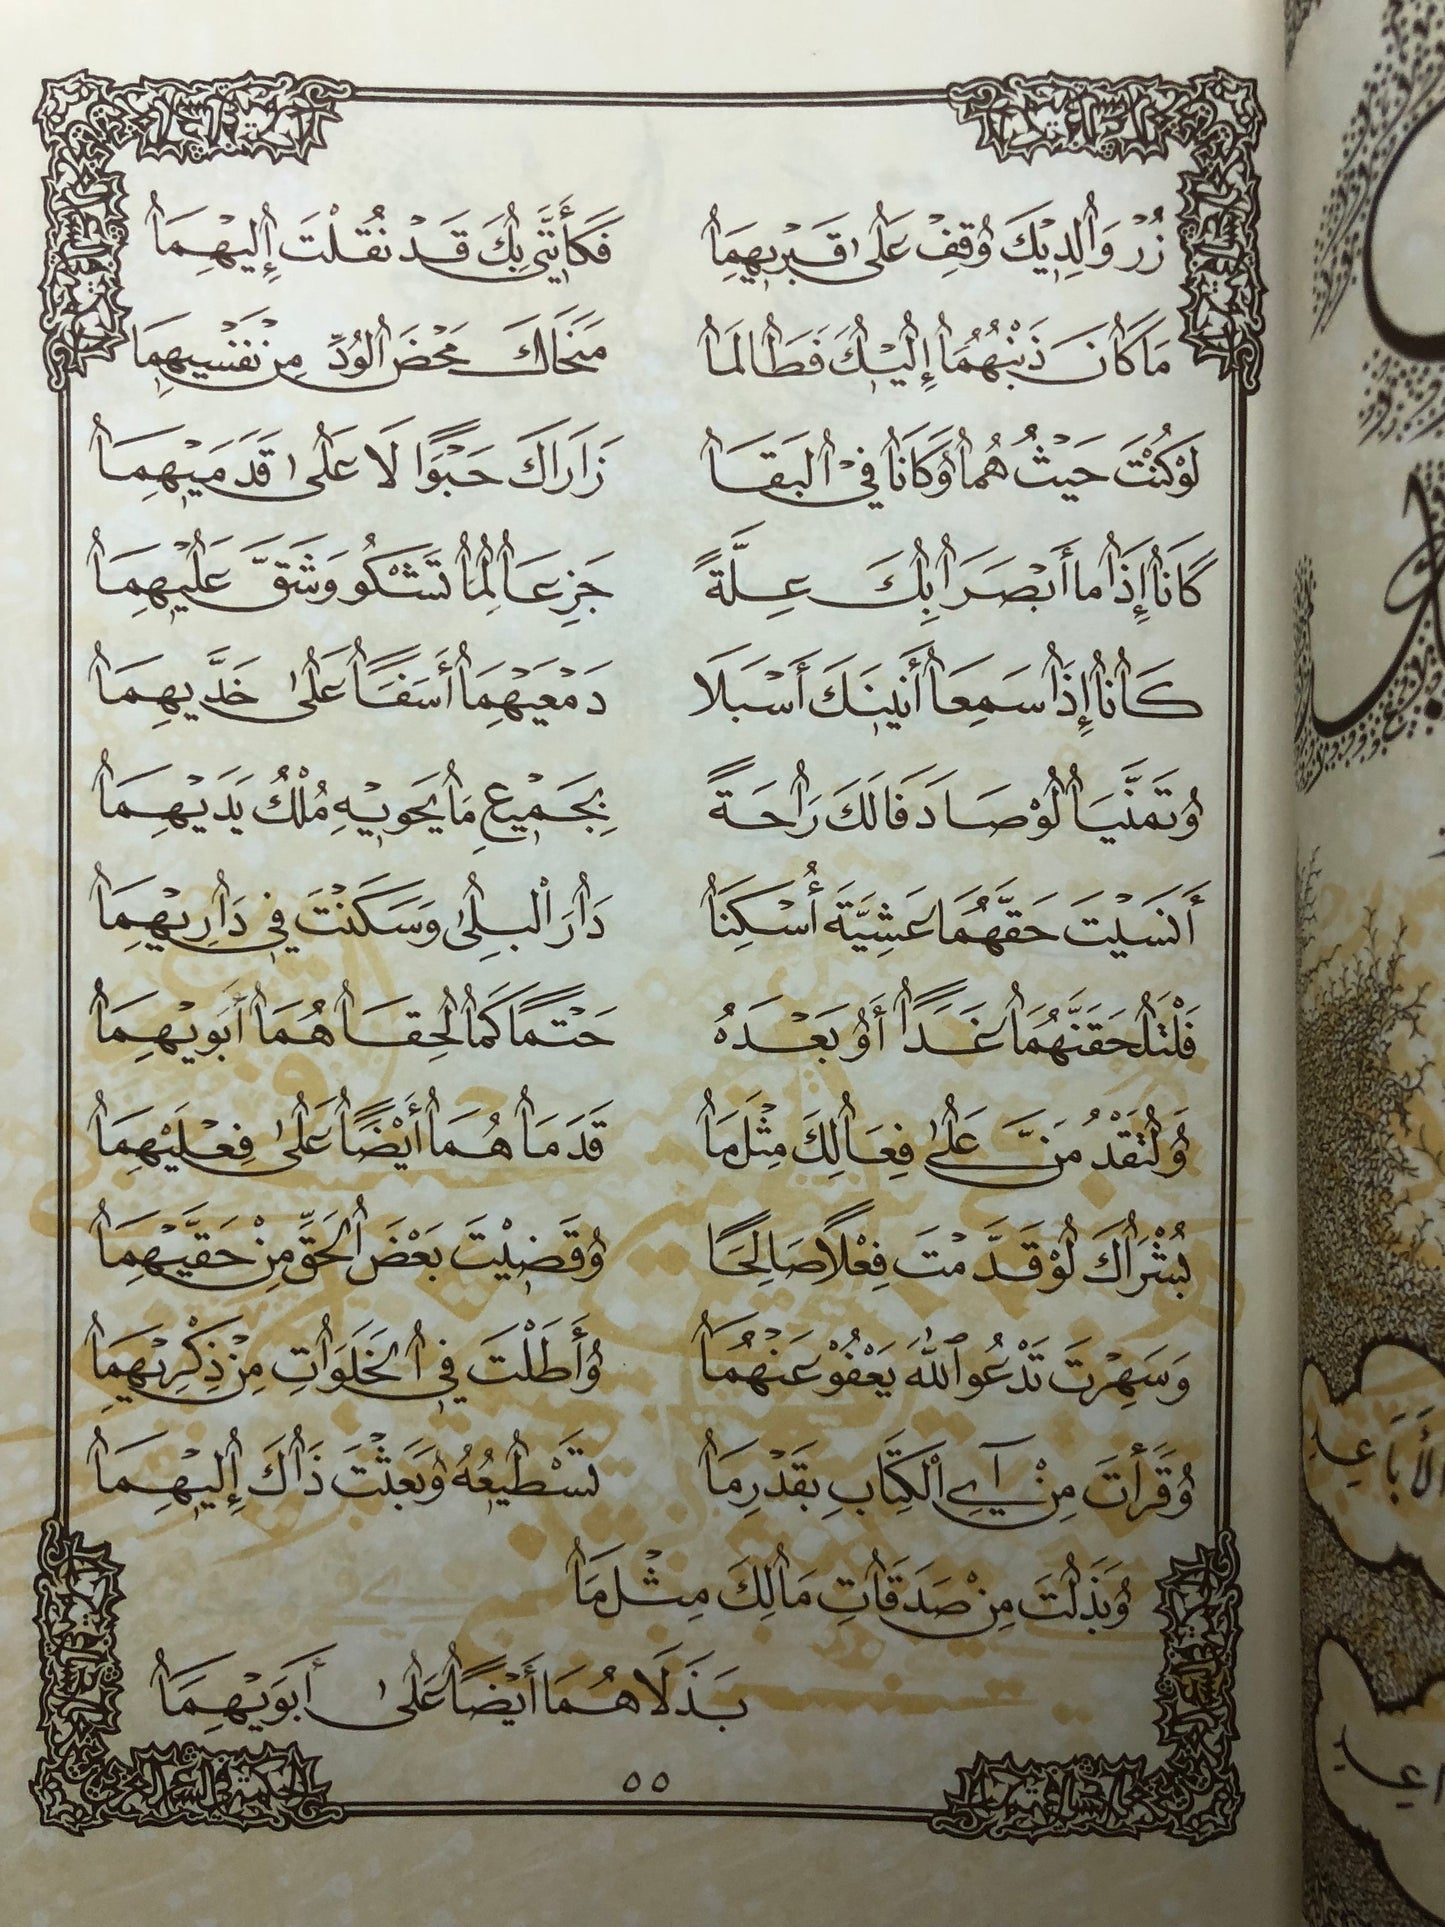 زُرْ وَالِدِيْكَ وَقِفْ عَلَى قَبْرِيهِمَا فَكَأَنَّنِي بِكَ قَدْ نُقِلْتَ إِلَيْهِمَا
مَا كَانَ ذَنْبُهُمَا إِلَيْكَ فَطَالَمَا مَنَحَاكَ مَحْضَ الْوُدِّ مِنْ نَفْسَيْهِمَا
لَوْ كُنْتَ حَيْثُ هُمَا وَكَانَا فِي الْبَقَا زَارَاكَ حَبْوًا لَا عَلَى قَدَمَيْهِمَا
كَانَا إِذَا مَا أَبْصَرَا بِكَ عِلَّةً جَزِعَا لِمَا تَشْكُو وَشَقَّ عَلَيْهِمَا
كَانَا إِذَا سَمِعَا أَنِينَكَ أَسْبَلَا دَمْعَيْهِمَا أَسَفًا عَلَى خَدَّيهِمَا
وَتَمَنَّيَا لَوْ صَادَفَا لَكَ رَاحَةً بِجَمْيعِ مَا يَحْوِيْهِ مُلْكُ يَدَيْهِمَا
أَنَسِيْتَ حَقَّهُمَا عَشِيَّةَ أُسْكِنَا دَارَ الْبِلَى وَسَكَنْتَ فِي دَارِيْهِمَا
فَلْتَلْحَقَنَّهُمَا غَدًا أَوْ بَعْدَهُ حَتْمًا كَمَا لَحِقَا هُمَا أَبَوَيْهِمَا
وَلْتَقْدُمَنَّ عَلَى فِعَالِكَ مِثْلَمَا قَدَمَا هُمَا أَيْضًا عَلَى فِعْلَيْهِمَا
بُشْرَاكَ لَوْ قَدَّمْتَ فِعْلًا صَالِحًا وَقَضَيْتَ بَعْضَ الْحَقِّ مِنْ حَقَّيْهِمَا
وَسَهِرْتَ تَدْعُو اللّٰهَ يَعْفُوْ عَنْهُمَا وَأَطَلْتَ فِي الْخَلَوَاتِ مِنْ ذِكْرِيْهِمَا
وَقَرَأْتَ مِنْ آيِ الْكِتَابِ بِقَدْرِ مَا تَسْطِيْعُهُ وَبَعَثْتَ ذَاكَ إِلَيْهِمَا
وَبَذَلْتَ مِنْ صَدَقَاتِ مَالِكَ مِثْلَمَا
بَذَلَا هُمَا أَيْضًا عَلَى أَبَوَيْهِمَا
٥٥